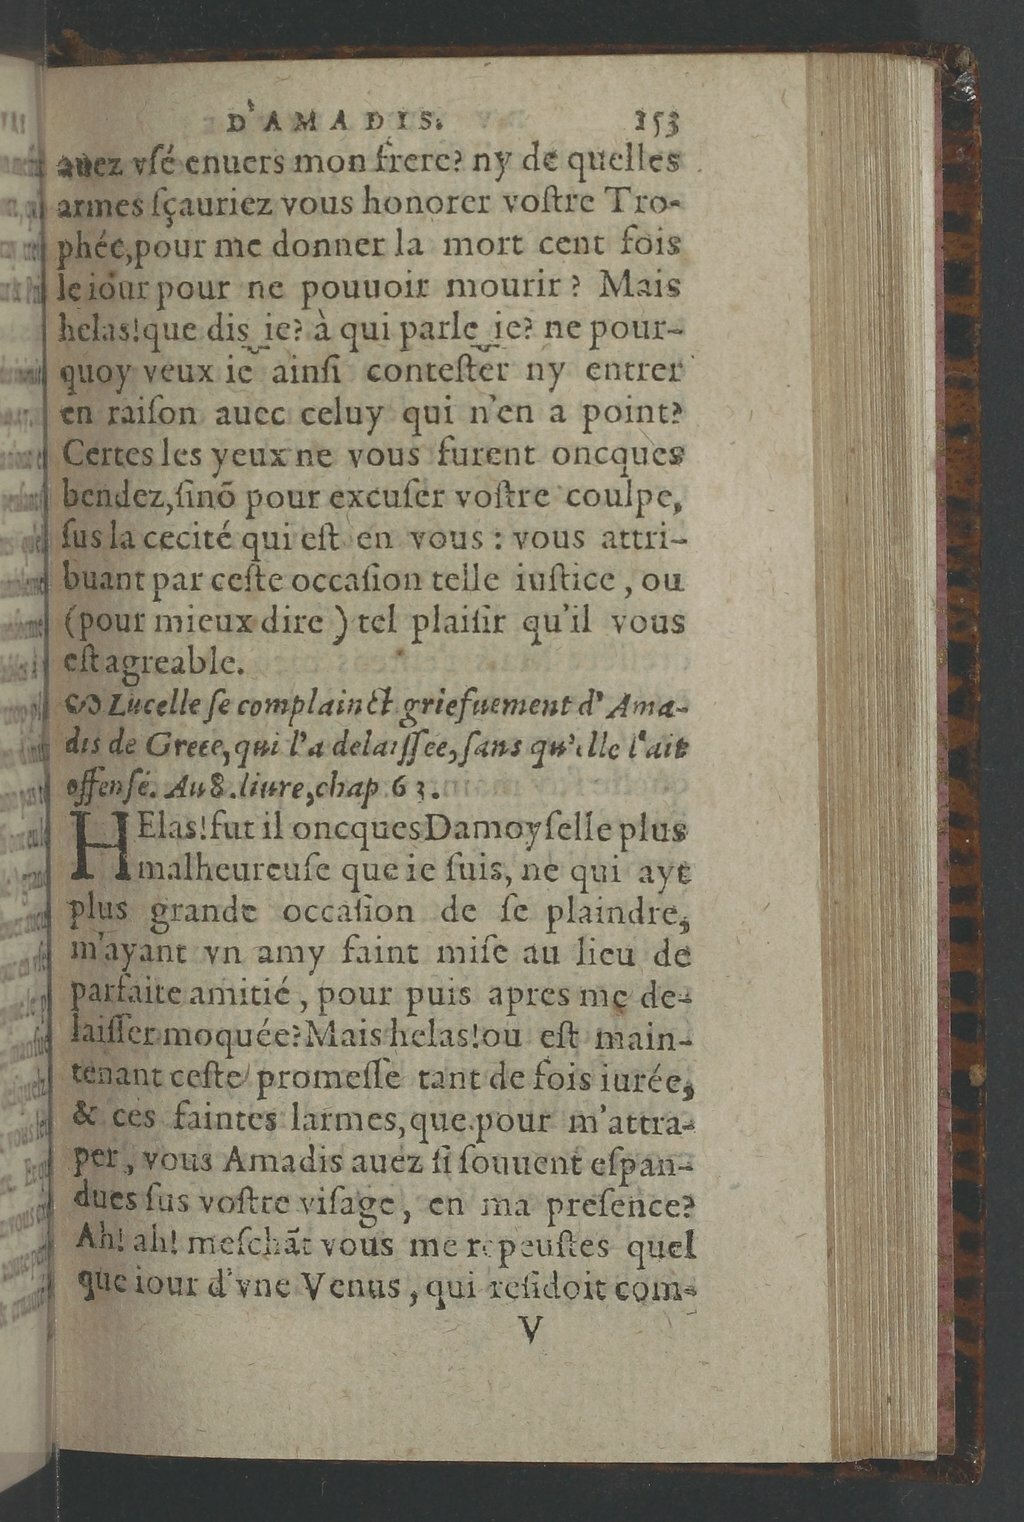 D'AMADIS. 153
auez vſé enuers mon frere? ny de quelles
armes ſçauriez vous honorer voſtre Tro-
phée, pour me donner la mort cent fois
le iour pour ne pouuoir mourir? Mais
helas! que dis ie? à qui parle ie? ne pour-
quoy veux ie ainſi conteſter ny entrer
en raiſon auec celuy qui n'en a point?
Certes les yeux ne vous furent oncques
bendez, ſinō pour excuſer voſtre coulpe,
ſus la cecité qui eſt en vous: vous attri-
buant par ceſte occaſion telle iuſtice, ou
(pour mieux dire) tel plaiſir qu'il vous
eſt agreable.
Lucelle ſe complainct griefuement d'Ama-
dis de Grece, qui l'a delaiſſee, ſans qu'elle l'ait
offenſé. Au 8. liure, chap. 63.
HElas! fut il oncques Damoyſelle plus
malheureuſe que ie ſuis, ne qui aye
plus grande occaſion de ſe plaindre,
m'ayant vn amy faint miſe au lieu de
parfaite amitié, pour puis apres me de-
laiſſer moquée? Mais helas! ou eſt main-
tenant ceſte promeſſe tant de fois iurée,
& ces faintes larmes, que pour m'attra-
per, vous Amadis auez ſi ſouuent eſpan-
dues ſus voſtre viſage, en ma preſence?
Ah! ah! meſchāt vous me repeuſtes quel
que iour d'vne Venus, qui reſidoit com-
V